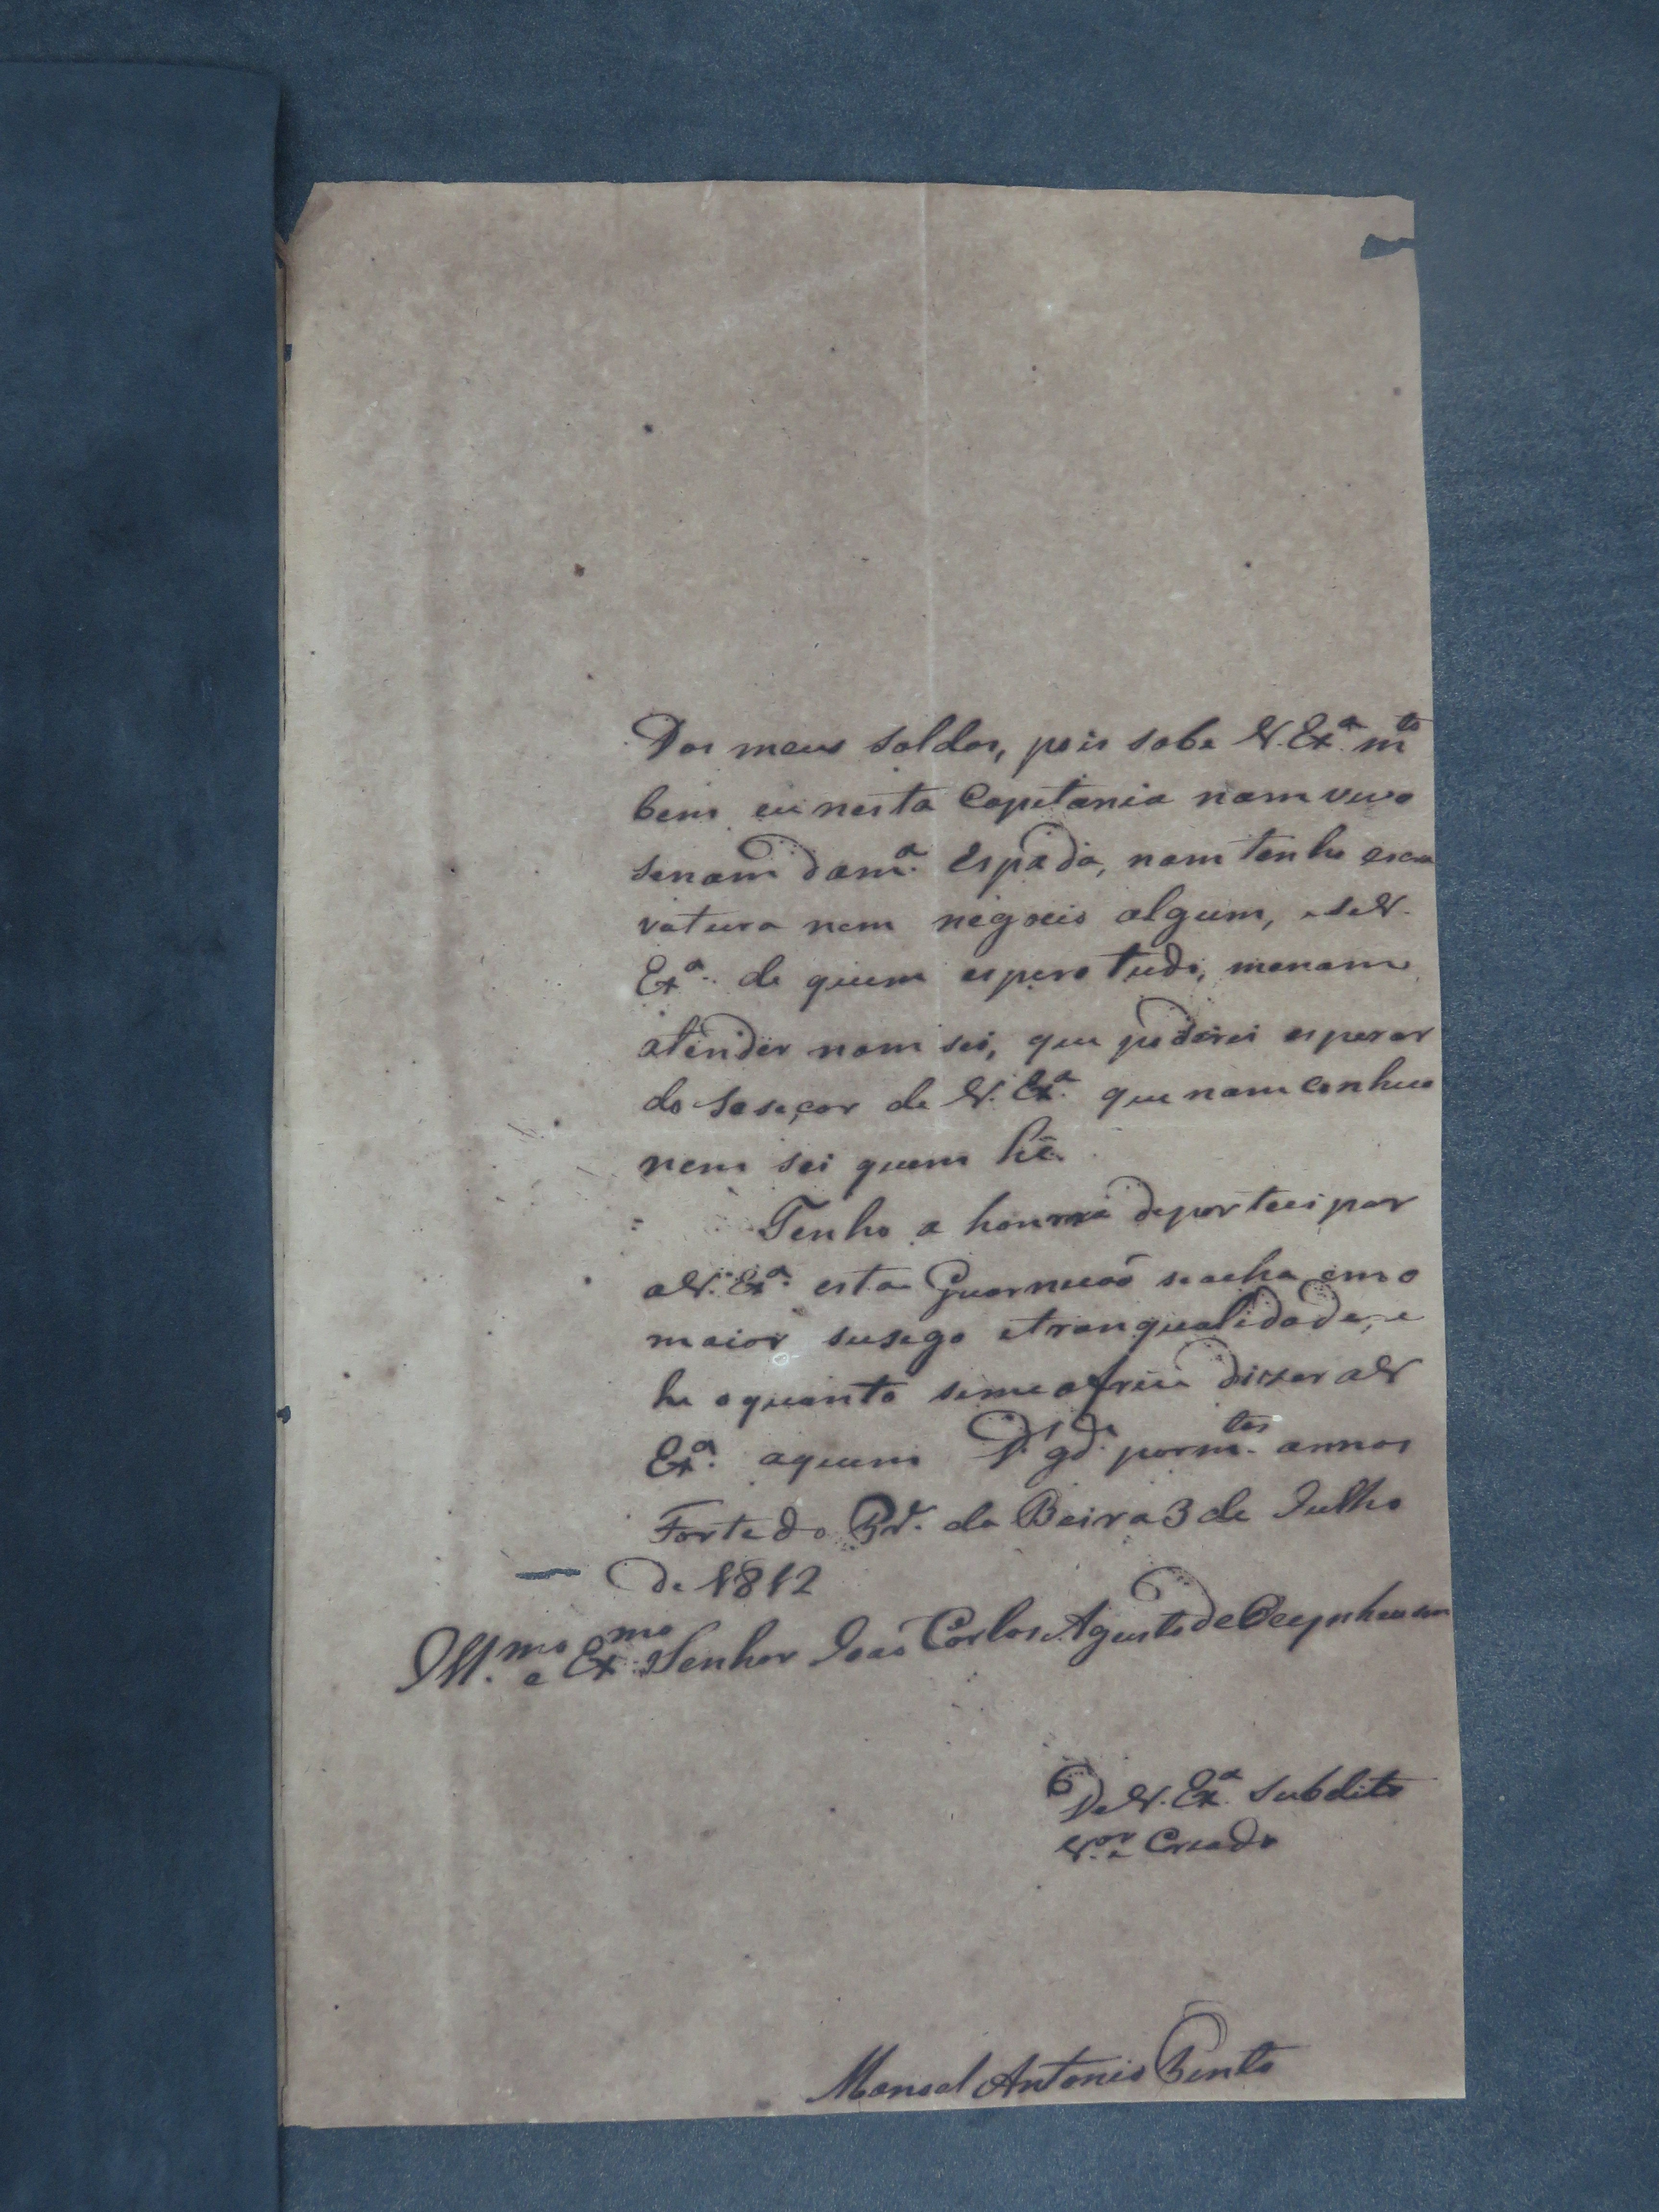 Dos meus soldos, pois sabe V. Exª. mto
bem eu nesta Capitania nam vivo
senam da mª. espada, nam tenho escra
vatura nem negocio algum, e se V.
Exª. de quem espero tudo, me nam
atender nam sei, que poderei esperar
do soseçor de V. Exª. que nam conheço
nem sei quem hê.
Tenho a honrra departecipar
a V. Exª. esta Guarnicaõ se acha em o
maior susego e tranqualidade, e
he o quanto se me ofrece dizer a V
Exª. aquem Ds. gde. por mtos. annos
Forte do Pr. da Beira 3 de Julho
de 1812
Illmo. e Exmo. Senhor Joaõ Carlos Agusto de Oeynhausen
De V. Exª. Subdito
Vor. e Criado
Manoel Antonio Pinto